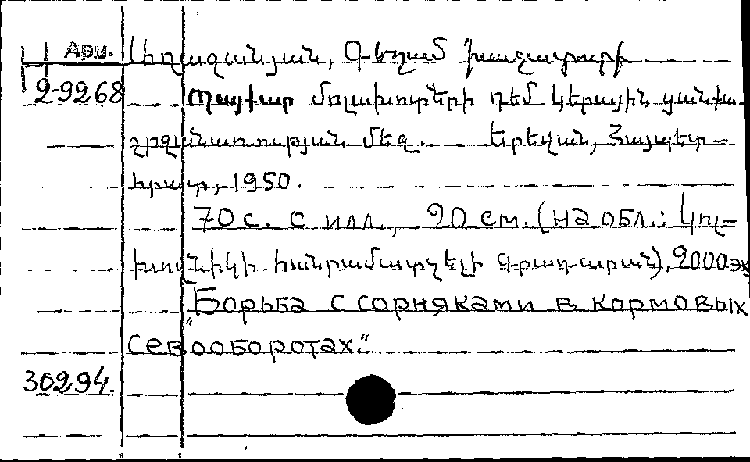 Арм. Լիպազանյան, Գեղամ Խաչատուրի
2-9268 Պայքար մոլախոտերի դեմ կերային ցանքա-
շրջանառության մեջ. Երեվան, Հայպետ-
հրատ, 1950.
70 с. с илл., 20 см. (на обл.: Կոլ-
խոզնիկի հանրամատչելի գրադարան), 2000 эк
"Борьба с сорняками в кормовых
севооборотах."
30294.